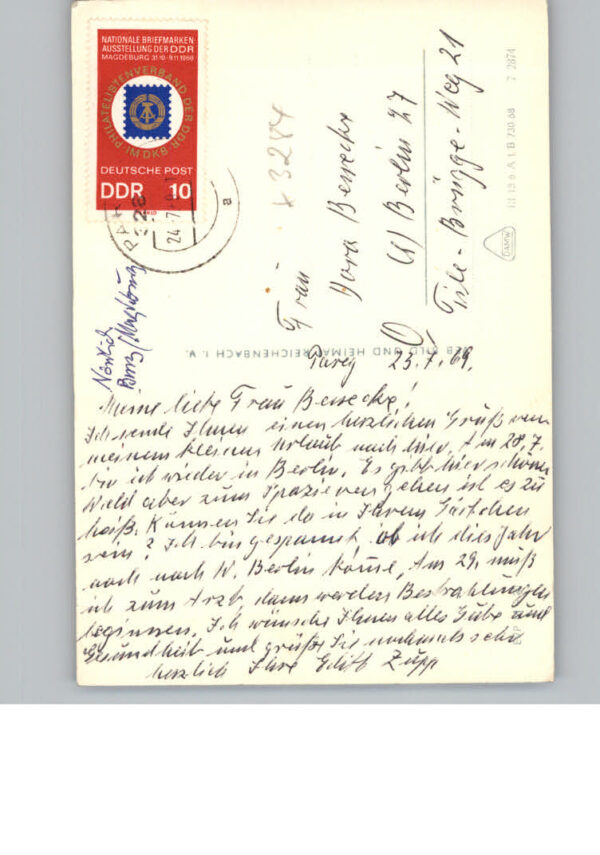 NATIONALE BRIEFMARKEN-
AUSSTELLUNG DER DDR
MAGDEBURG 31.10.-9.11.1969
PHILATELISTENVERBAND DER DDR
IM DKB
DEUTSCHE POST
DDR 10
24.7.
a
x 3284
Frau
Dora
(1) Berlin 27
Tile-Brügge-Weg 21
III 18 6 A 1 B 730 68 7 2874
VEB BILD UND HEIMAT REICHENBACH I. V.
Nördlich
Burg/Magdeburg
Parey 23.7.69.
Meine liebe Frau
Ich sende Ihnen einen herzlichen Gruß von
meinem kleinen Urlaub nach hier. Am 28.7.
bin ich wieder in Berlin. Es gibt hier schönen
Wald aber zum Spazierengehen ist es zu
heiß. Können Sie da in Ihrem Gärtchen
sein? Ich bin gespannt ob ich dies Jahr
noch nach W. Berlin käme. Am 29. muß
ich zum Arzt, dann werden Bestrahlungen
beginnen. Ich wünsche Ihnen alles Gute und
Gesundheit und grüße Sie nochmals sehr
herzlich Ihre Zupp